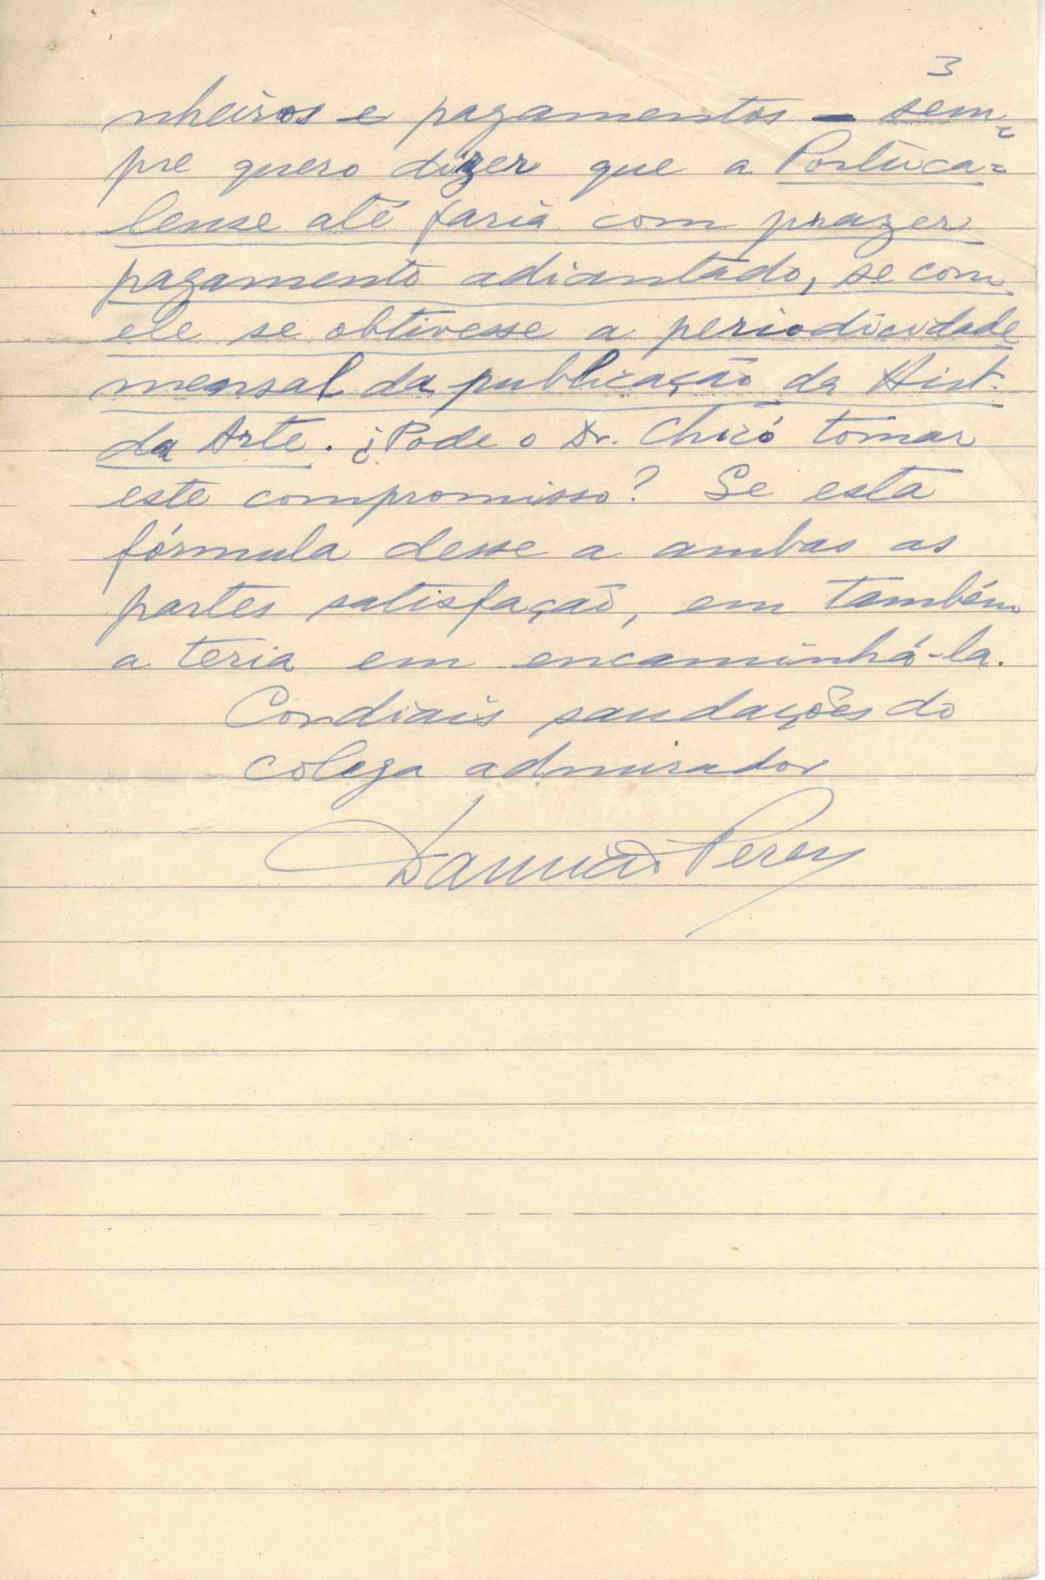 3
nheiros e pagamentos - sem-
pre quero dizer que a Portuca=
lense até faria com prazer
pagamento adiantado, se com
ele se obtivesse a periodicidade
mensal da publicação da Hist.
da Arte. ¿Pode o Dr. Chicó tomar
este compromisso? Se esta
fórmula desse a ambas as
partes satisfação, eu também
a teria em encaminhá-la.
Cordiais saudações do
colega admirador
Damião Peres